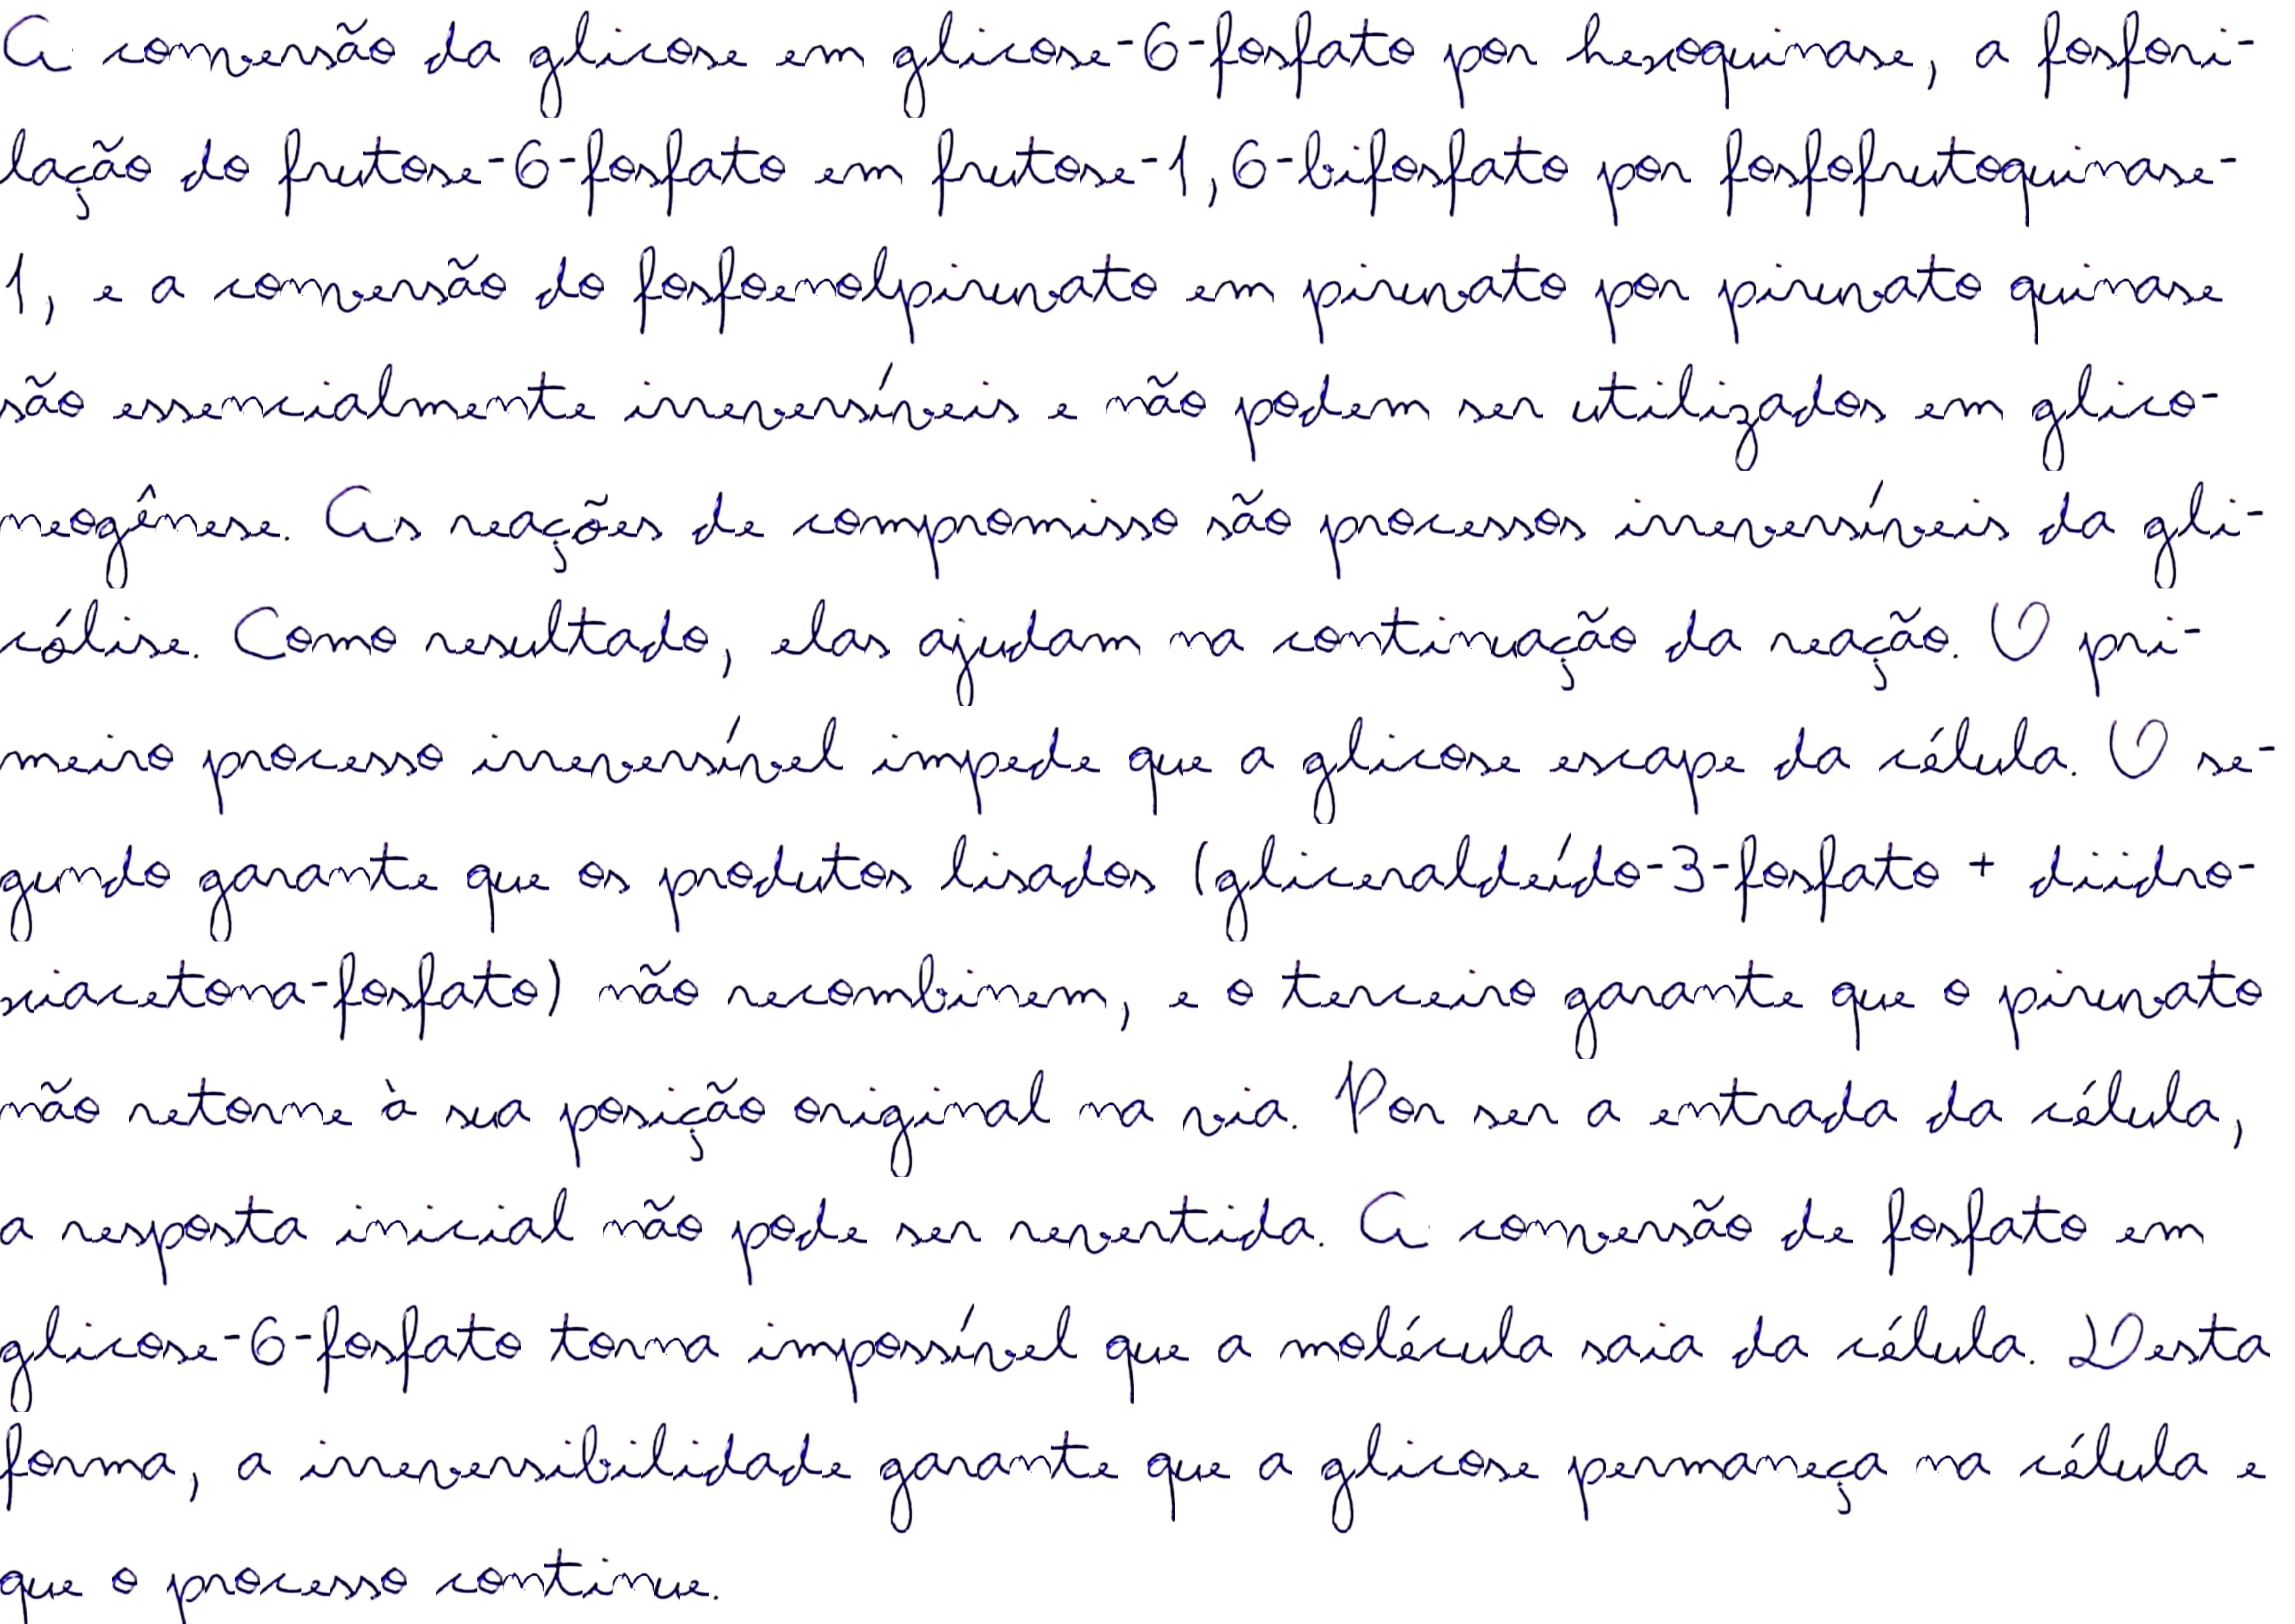 A conversão da glicose em glicose-6-fosfato por hexoquinase, a fosfori-
lação do frutose-6-fosfato em frutose-1,6-bifosfato por fosfofrutoquinase-
1, e a conversão do fosfoenolpiruvato em piruvato por piruvato quinase
são essencialmente irreversíveis e não podem ser utilizados em glico-
neogênese. As reações de compromisso são processos irreversíveis da gli-
cólise. Como resultado, elas ajudam na continuação da reação. O pri-
meiro processo irreversível impede que a glicose escape da célula. O se-
gundo garante que os produtos lisados (gliceraldeído-3-fosfato + diidro-
xiacetona-fosfato) não recombinem, e o terceiro garante que o piruvato
não retorne à sua posição original na via. Por ser a entrada da célula,
a resposta inicial não pode ser revertida. A conversão de fosfato em
glicose-6-fosfato torna impossível que a molécula saia da célula. Desta
forma, a irreversibilidade garante que a glicose permaneça na célula e
que o processo continue.